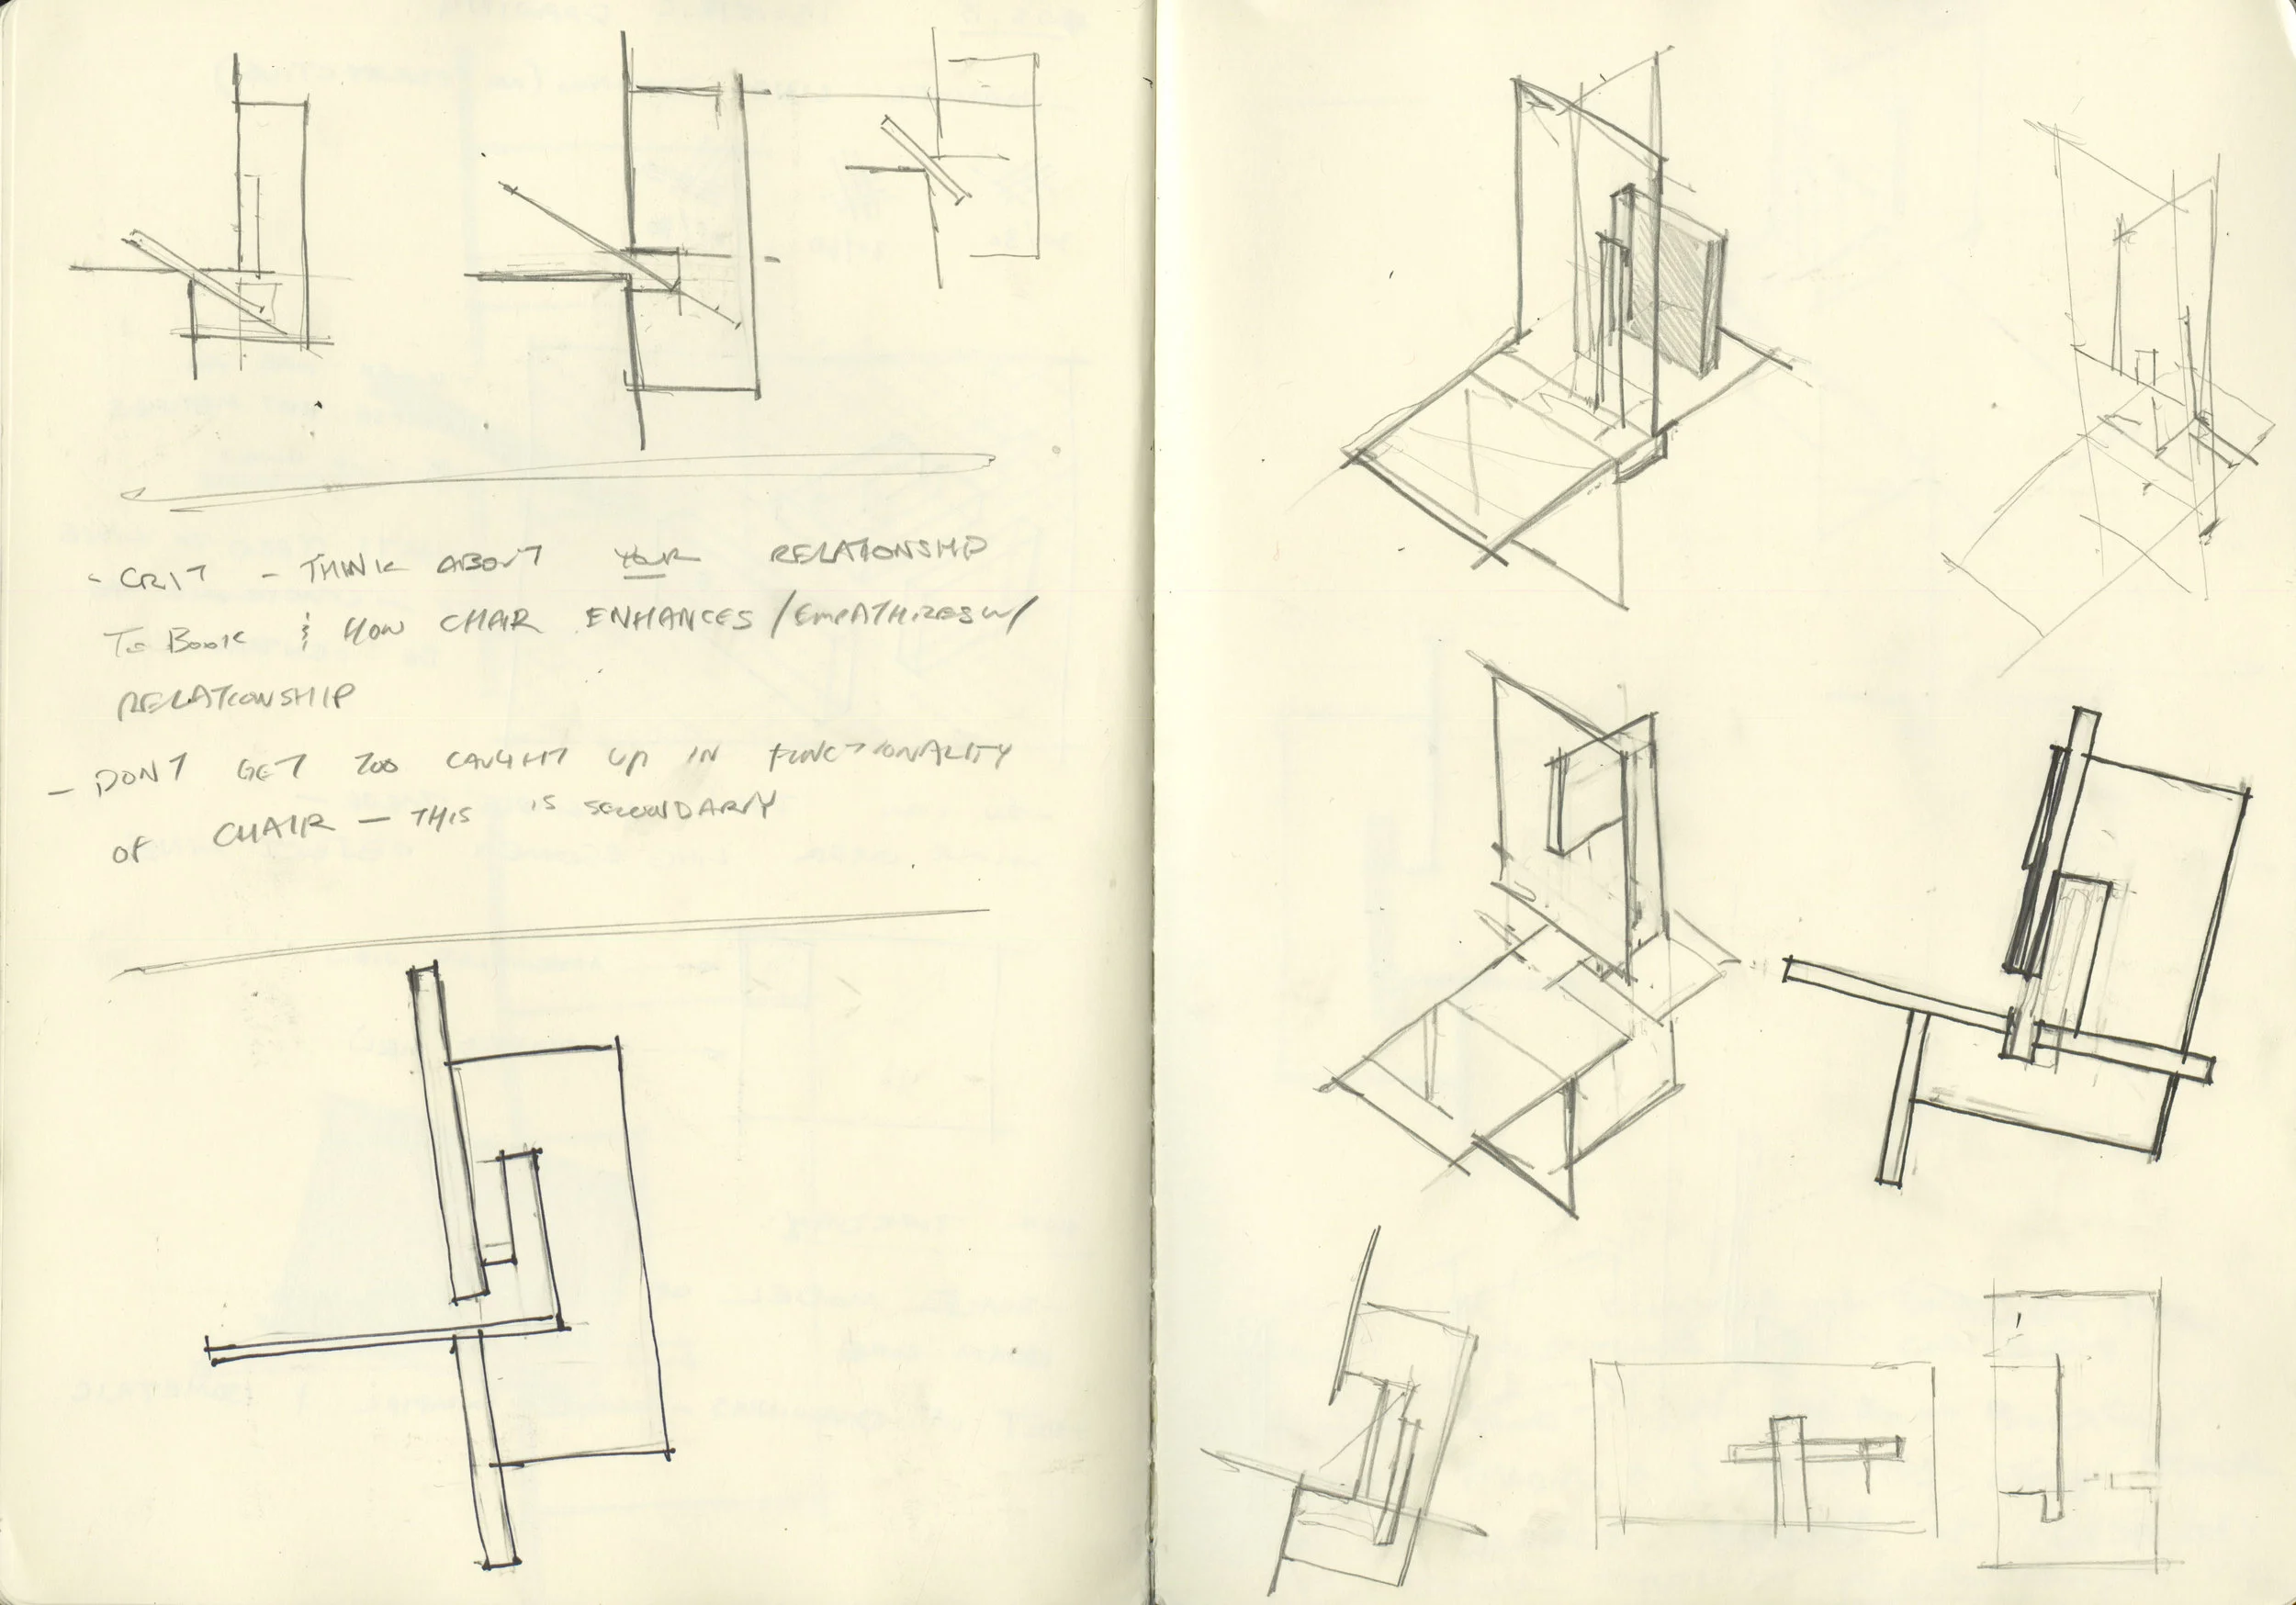 - CRIT - THINK ABOUT YOUR RELATIONSHIP
TO BOOK & HOW CHAIR ENHANCES/EMPATHIZES W/
RELATIONSHIP
- DON'T GET TOO CAUGHT UP IN FUNCTIONALITY
OF CHAIR - THIS IS SECONDARY